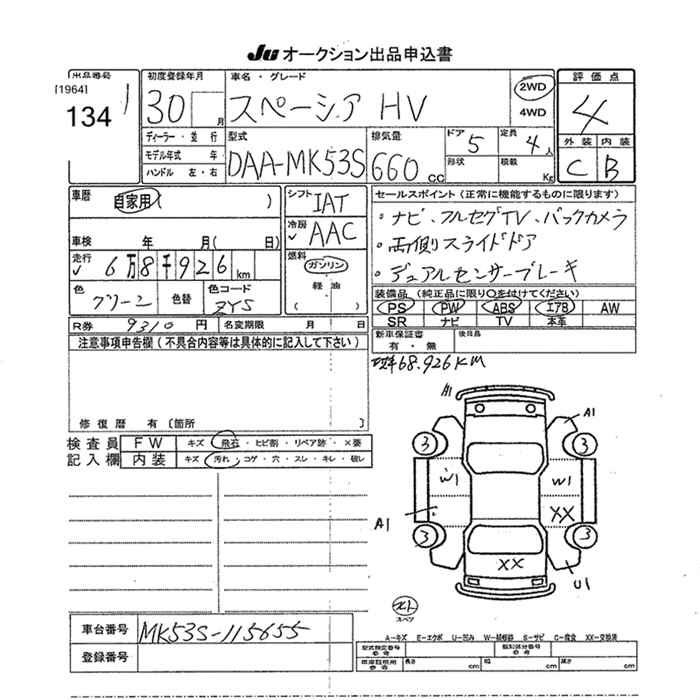 Ju オークション出品申込書
出品番号
[1964]
134
初度登録年月
30 月
車名・グレード
スペーシア HV
2WD
4WD
評価点
4
外装 内装
C B
ディーラー・並行
モデル年式 年
ハンドル 左・右
型式
DAA-MK53S
排気量
660 CC
ドア 5
形状
定員 4人
積載 Kg
車歴 自家用( )
車検 年 月( 日)
走行 6万8千926km
色 グリーン 色替 色コード ZYS
シフト IAT
冷房 AAC
燃料 ガソリン
軽油
( )
セールスポイント(正常に機能するものに限ります)
・ナビ、フルセグTV、バックカメラ
・両側スライドドア
・デュアルセンサーブレーキ
装備品(純正品に限り○を付けてください)
PS PW ABS エアB AW
SR ナビ TV 本革
R券 9310円 名変期限 月 日
新車保証書 有・無 後日品
68.926KM
注意事項申告欄(不具合内容等は具体的に記入して下さい)
修復歴 有〔箇所 〕
検査員記入欄
FW キズ・飛石・ヒビ割・リペア跡・×要
内装 キズ・汚れ・コゲ・穴・スレ・キレ・破レ
A1
A1
3 3
W1 W1
A1 XX
3 3
XX
U1
スペア
A-キズ E-エクボ U-凹み W-補修跡 S-サビ C-腐食 XX-交換済
車台番号 MK53S-115655
登録番号
型式指定番号 参考 類別区分番号 参考
車庫証明用 参考 長さ cm 幅 cm 高さ cm